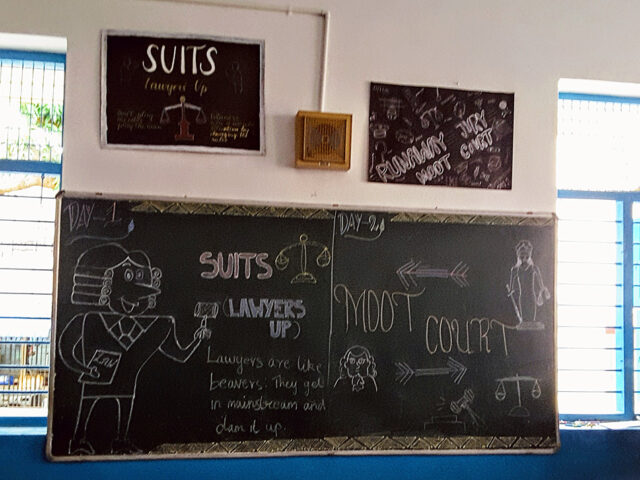 SUITS
Lawyers Up
RUNAWAY JURY
MOOT COURT
DAY-1
SUITS
(LAWYERS
UP)
Lawyers are like
beavers. They get
in mainstream and
dam it up.
Law
DAY-2
MOOT
COURT